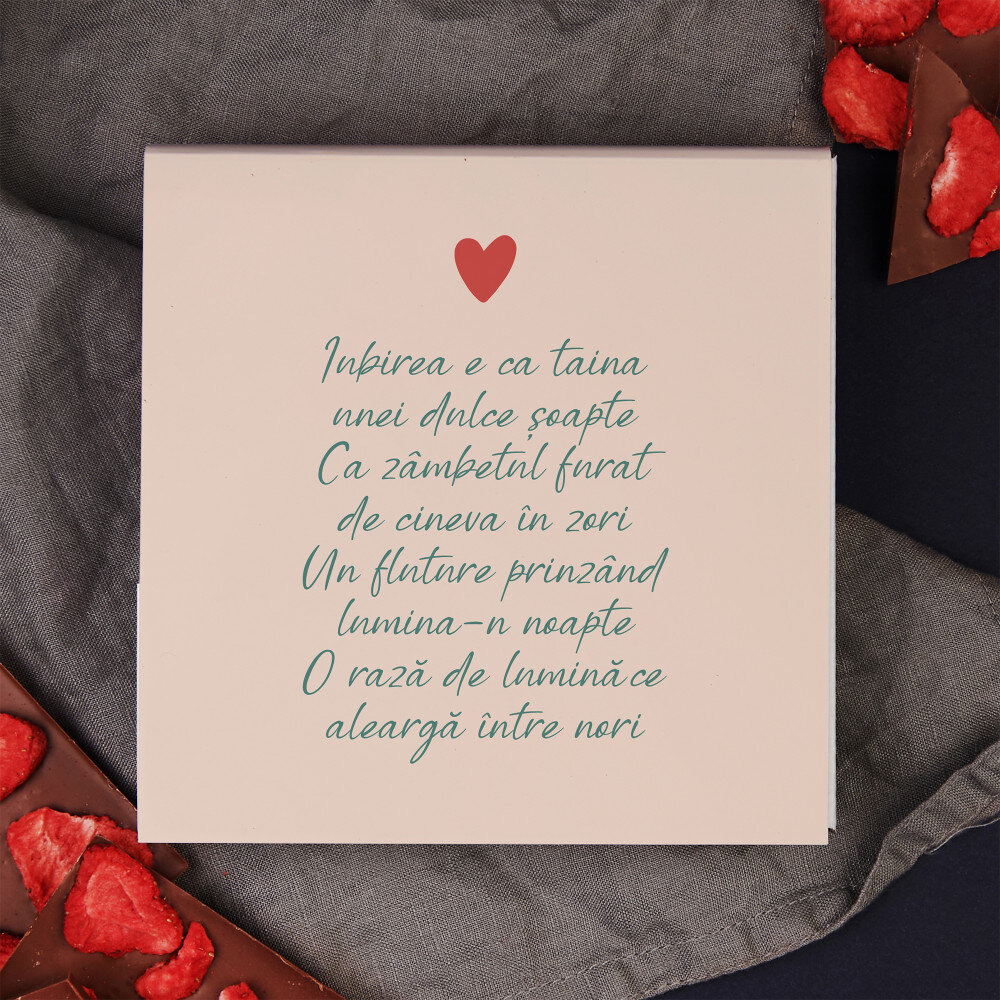 Iubirea e ca taina
unei dulce șoapte
Ca zâmbetul furat
de cineva în zori
Un fluture prinzând
lumina-n noapte
O rază de lumină ce
aleargă între nori